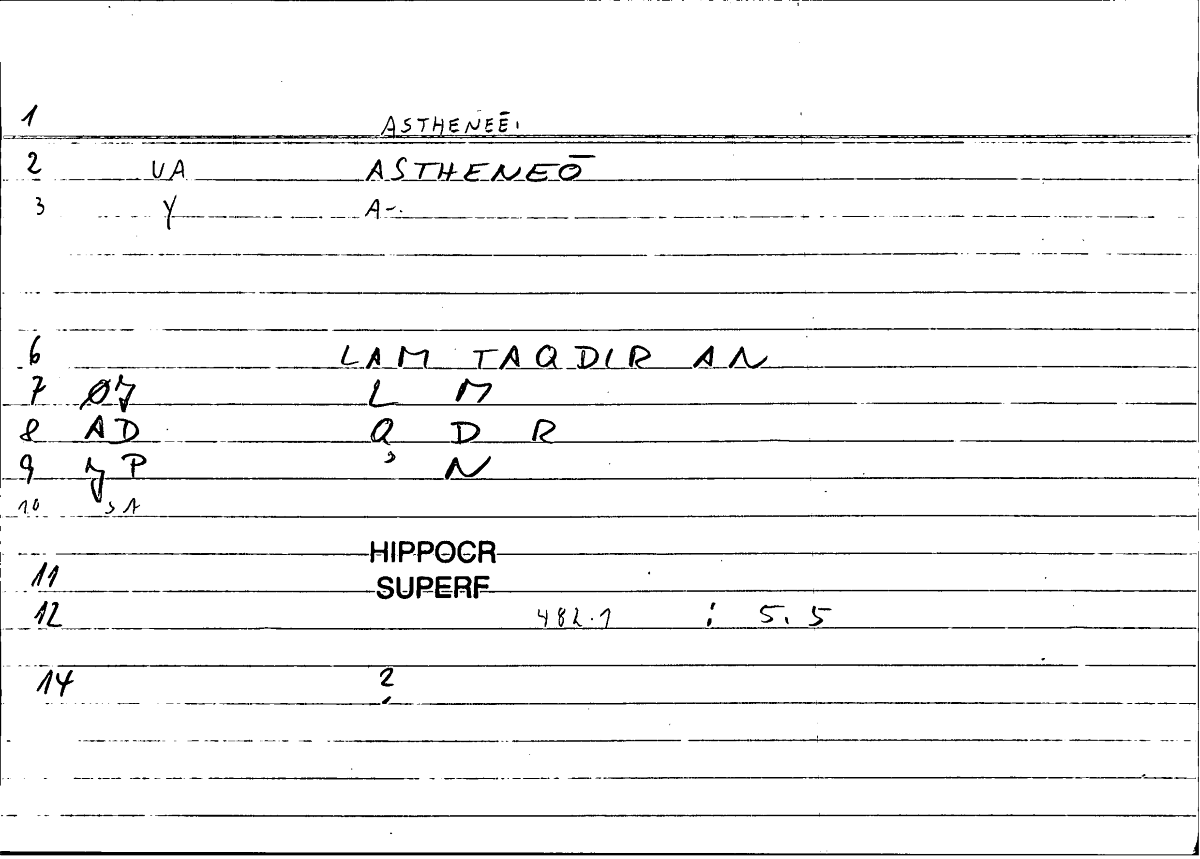 1 ASTHENEĒ.
2 VA ASTHENEŌ
3 Y A-.
6 LAM TAQDIR AN
7 L M
8 AD Q D R
9 P ʾ N
10 A
HIPPOCR
11 SUPERF
12 482.1 : 5.5
14 2